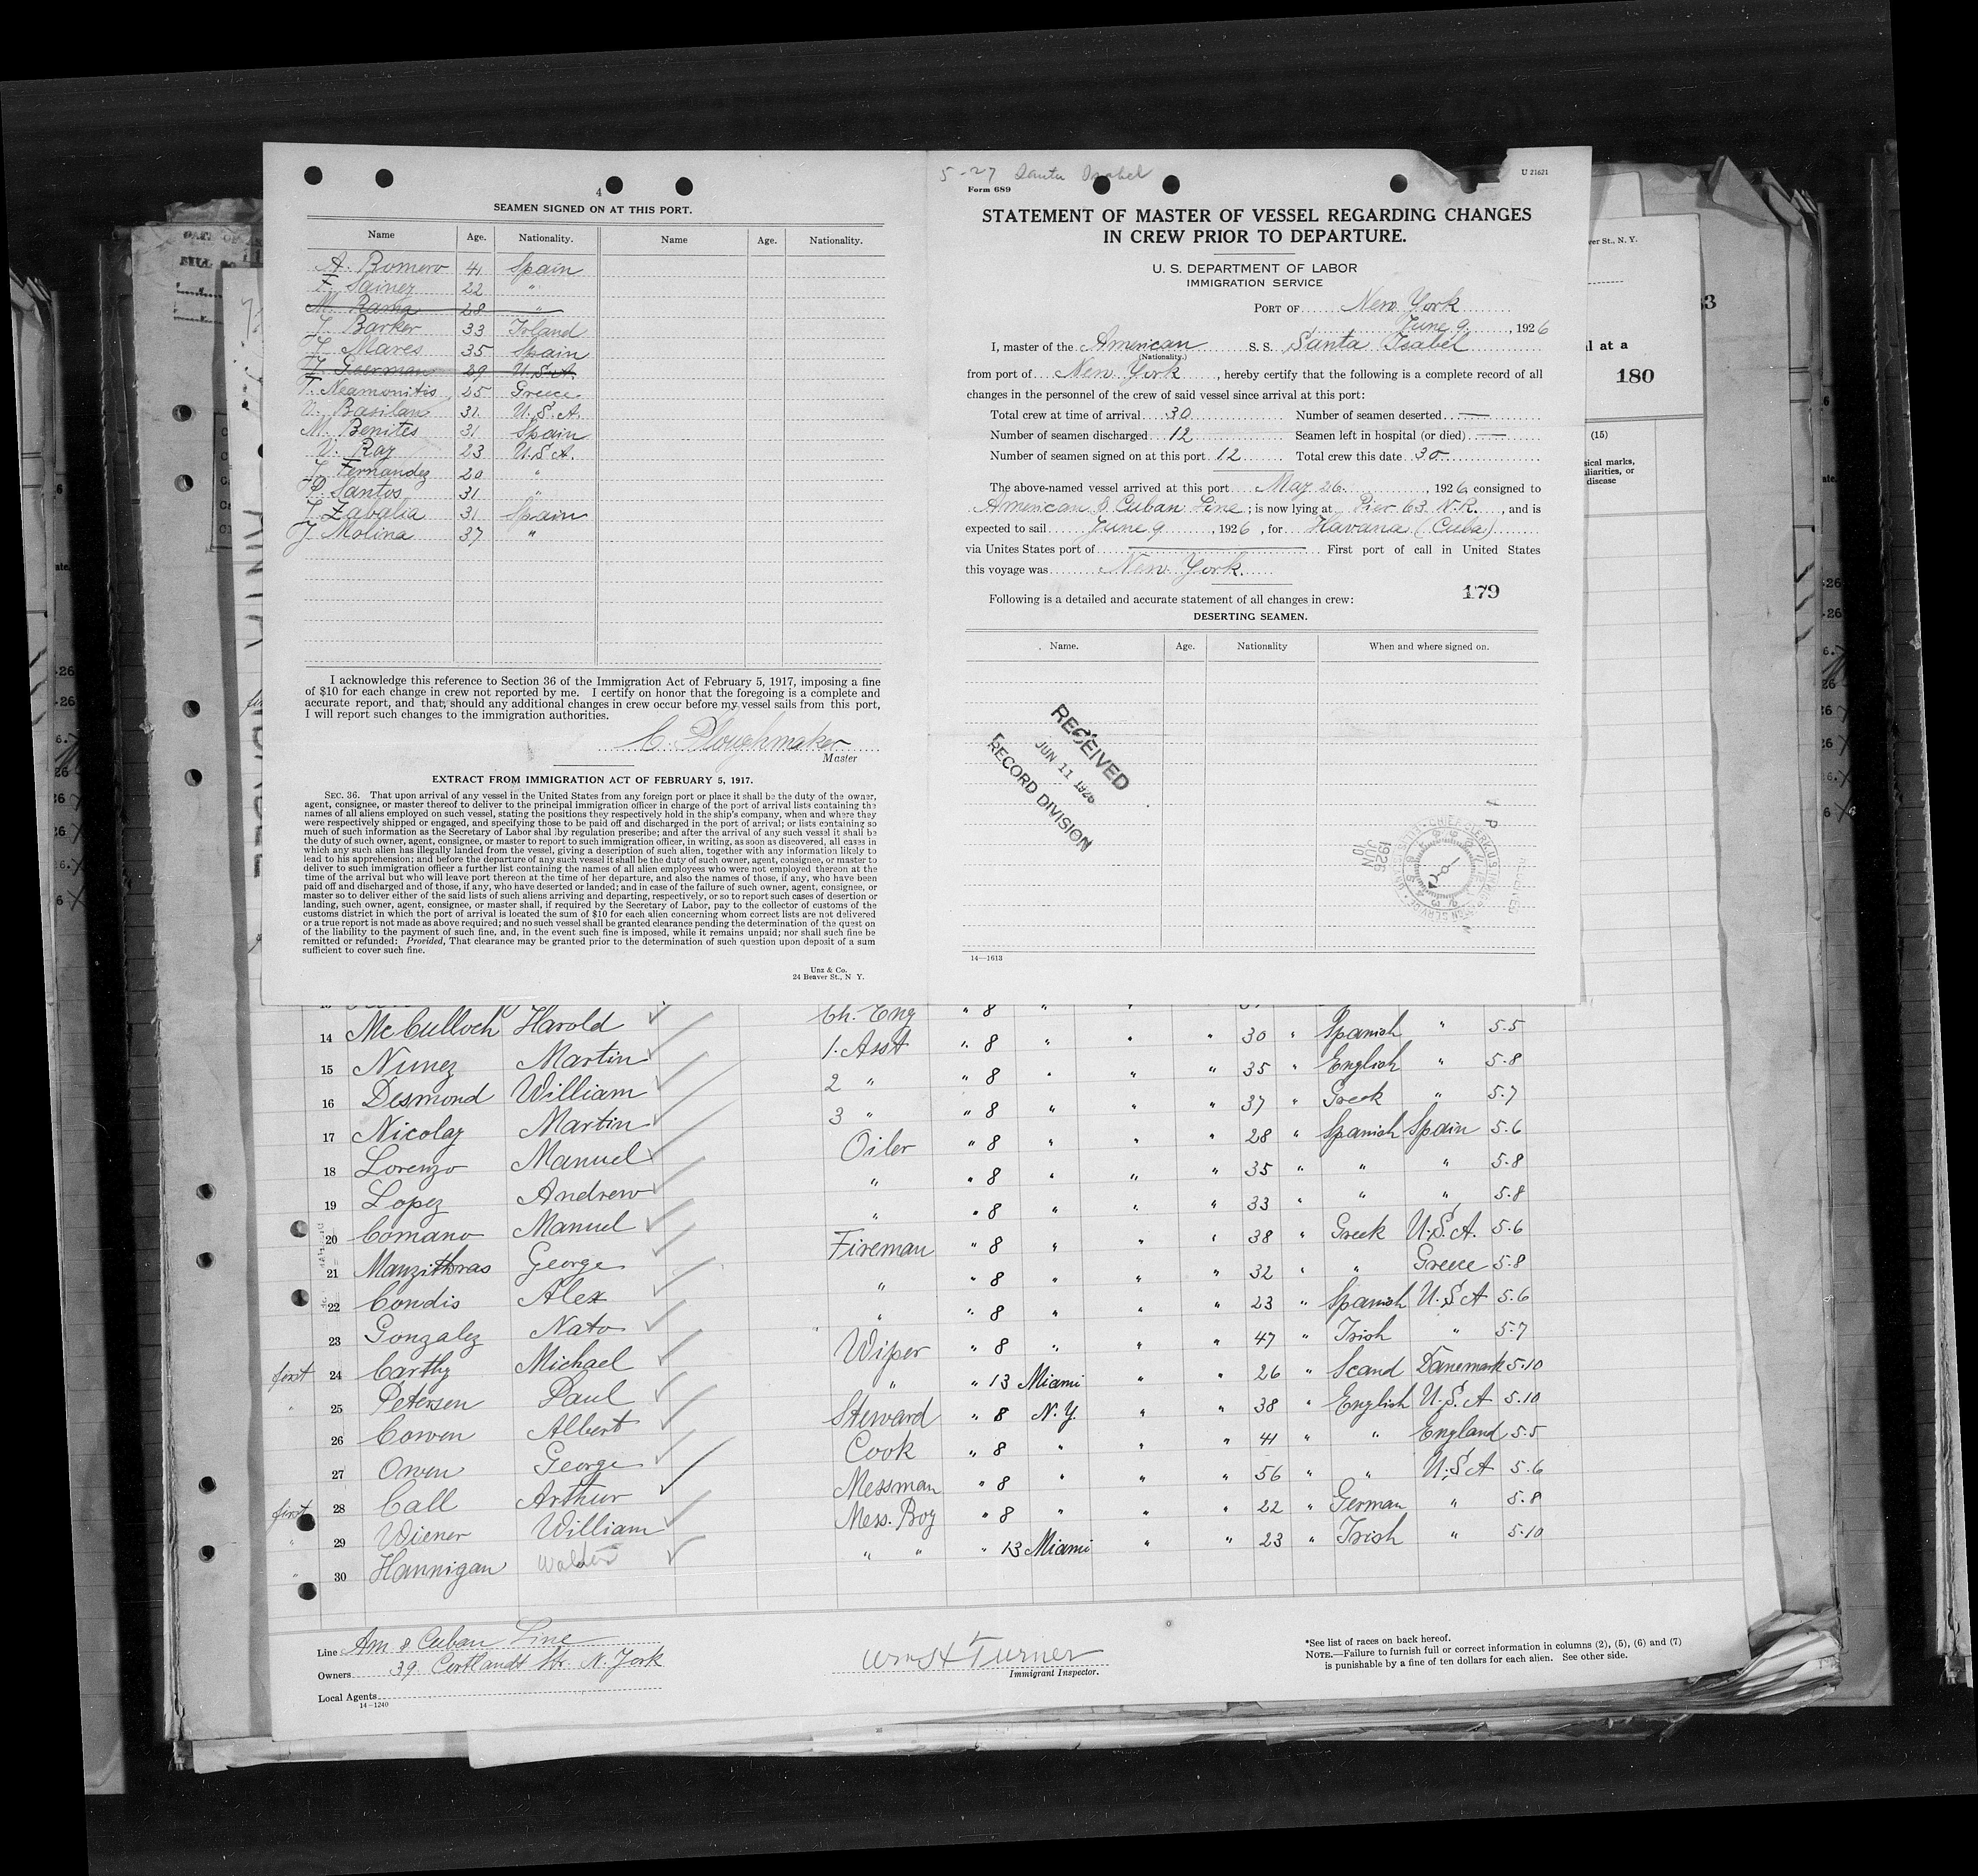 4
SEAMEN SIGNED ON AT THIS PORT.
Name Age. Nationality. Name Age. Nationality.
A. Romero 41 Spain
F. Sainez 22 "
M. Rama 28 "
J. Barker 33 Irland
J. Mares 35 Spain
J. Guerman 29 U.S.A.
T. Neamonitis 25 Greece
V. Basilan 31 U.S.A.
M. Benites 31 Spain
V. Ray 23 U.S.A.
J. Fernandez 20 "
P. Santos 31 "
J. Zavalia 31 Spain
J. Molina 37 "
I acknowledge this reference to Section 36 of the Immigration Act of February 5, 1917, imposing a fine
of $10 for each change in crew not reported by me. I certify on honor that the foregoing is a complete and
accurate report, and that, should any additional changes in crew occur before my vessel sails from this port,
I will report such changes to the immigration authorities.
C. Ploughmaker
Master
EXTRACT FROM IMMIGRATION ACT OF FEBRUARY 5, 1917.
SEC. 36. That upon arrival of any vessel in the United States from any foreign port or place it shall be the duty of the owner,
agent, consignee, or master thereof to deliver to the principal immigration officer in charge of the port of arrival lists containing the
names of all aliens employed on such vessel, stating the positions they respectively hold in the ship's company, when and where they
were respectively shipped or engaged, and specifying those to be paid off and discharged in the port of arrival; or lists containing so
much of such information as the Secretary of Labor shal lby regulation prescribe; and after the arrival of any such vessel it shall be
the duty of such owner, agent, consignee, or master to report to such immigration officer, in writing, as soon as discovered, all cases in
which any such alien has illegally landed from the vessel, giving a description of such alien, together with any information likely to
lead to his apprehension; and before the departure of any such vessel it shall be the duty of such owner, agent, consignee, or master to
deliver to such immigration officer a further list containing the names of all alien employees who were not employed thereon at the
time of the arrival but who will leave port thereon at the time of her departure, and also the names of those, if any, who have been
paid off and discharged and of those, if any, who have deserted or landed; and in case of the failure of such owner, agent, consignee, or
master so to deliver either of the said lists of such aliens arriving and departing, respectively, or so to report such cases of desertion or
landing, such owner, agent, consignee, or master shall, if required by the Secretary of Labor, pay to the collector of customs of the
customs district in which the port of arrival is located the sum of $10 for each alien concerning whom correct lists are not delivered
or a true report is not made as above required; and no such vessel shall be granted clearance pending the determination of the quest on
of the liability to the payment of such fine, and, in the event such fine is imposed, while it remains unpaid; nor shall such fine be
remitted or refunded: Provided, That clearance may be granted prior to the determination of such question upon deposit of a sum
sufficient to cover such fine.
Unz & Co.
24 Beaver St., N Y.
5-27 Santa Isabel
Form 689
U 21621
STATEMENT OF MASTER OF VESSEL REGARDING CHANGES
IN CREW PRIOR TO DEPARTURE.
U. S. DEPARTMENT OF LABOR
IMMIGRATION SERVICE
PORT OF New York
June 9, 1926
I, master of the American S. S. Santa Isabel
(Nationality.)
from port of New York, hereby certify that the following is a complete record of all
changes in the personnel of the crew of said vessel since arrival at this port:
Total crew at time of arrival 30 Number of seamen deserted —
Number of seamen discharged 12 Seamen left in hospital (or died) —
Number of seamen signed on at this port 12 Total crew this date 30
The above-named vessel arrived at this port May 26, 1926, consigned to
American & Cuban Line; is now lying at Pier 63 N.R., and is
expected to sail June 9, 1926, for Havana (Cuba)
via Unites States port of — First port of call in United States
this voyage was New York.
179
Following is a detailed and accurate statement of all changes in crew:
DESERTING SEAMEN.
Name. Age. Nationality When and where signed on.
RECEIVED
JUN 11 1926
RECORD DIVISION
1926
JUN
10
14—1613
ver St., N. Y.
l at a
180
(15)
sical marks,
uliarities, or
disease
14 McCulloch Harold Ch. Eng " 8 " " " 30 " Spanish " 5-5
15 Nunez Martin 1. Asst " 8 " " " 35 " English " 5-8
16 Desmond William 2 " " 8 " " " 37 " Greek " 5-7
17 Nicolay Martin 3 " " 8 " " " 28 " Spanish Spain 5-6
18 Lorenzo Manuel Oiler " 8 " " " 35 " " " 5-8
19 Lopez Andrew " " 8 " " " 33 " " " 5-8
20 Comano Manuel " " 8 " " " 38 " Greek U.S.A. 5-6
21 Manzithras George Fireman " 8 " " " 32 " " Greece 5-8
22 Condis Alex " " 8 " " " 23 " Spanish U.S.A 5-6
23 Gonzalez Nato " " 8 " " " 47 " Irish " 5-7
first 24 Carthy Michael Wiper " 8 " " " 26 " Scand Danemark 5-10
" 25 Petersen Paul " " 13 Miami " " 38 " English U.S.A 5-10
26 Cowen Albert Steward " 8 N.Y. " " 41 " " England 5-5
27 Owen George Cook " 8 " " " 56 " " U.S.A 5-6
first 28 Call Arthur Messman " 8 " " " 22 " German " 5-8
" 29 Wiener William Mess. Boy " 8 " " " 23 " Irish " 5-10
" 30 Hannigan Walter " " " 13 Miami "
Line Am & Cuban Line
Owners 39 Cortlandt Str. N. York
Local Agents
14—1240
Wm H Turner
Immigrant Inspector.
*See list of races on back hereof.
NOTE.—Failure to furnish full or correct information in columns (2), (5), (6) and (7)
is punishable by a fine of ten dollars for each alien. See other side.